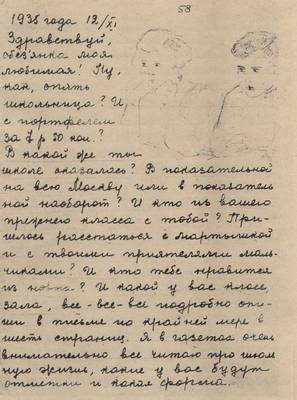 58
1935 года 12/XI
Здравствуй,
обезьянка моя
любимая! Ну,
как, опять
школьница? И
с портфелем
за 7 р 50 коп.?
В какой же ты
школе оказалась? В показательной
на всю Москву или в показатель
ной наоборот? И кто из вашего
прежнего класса с тобой? При-
шлось расстаться с мартышкой
и с твоими приятелями маль-
чиками? И кто тебе нравится
из новых? И какой у вас класс,
зала, все-все-все подробно опи-
ши в письме по крайней мере в
шесть страниц. Я в газетах очень
внимательно все читаю про школь
ную жизнь, какие у вас будут
отметки и какая форма.